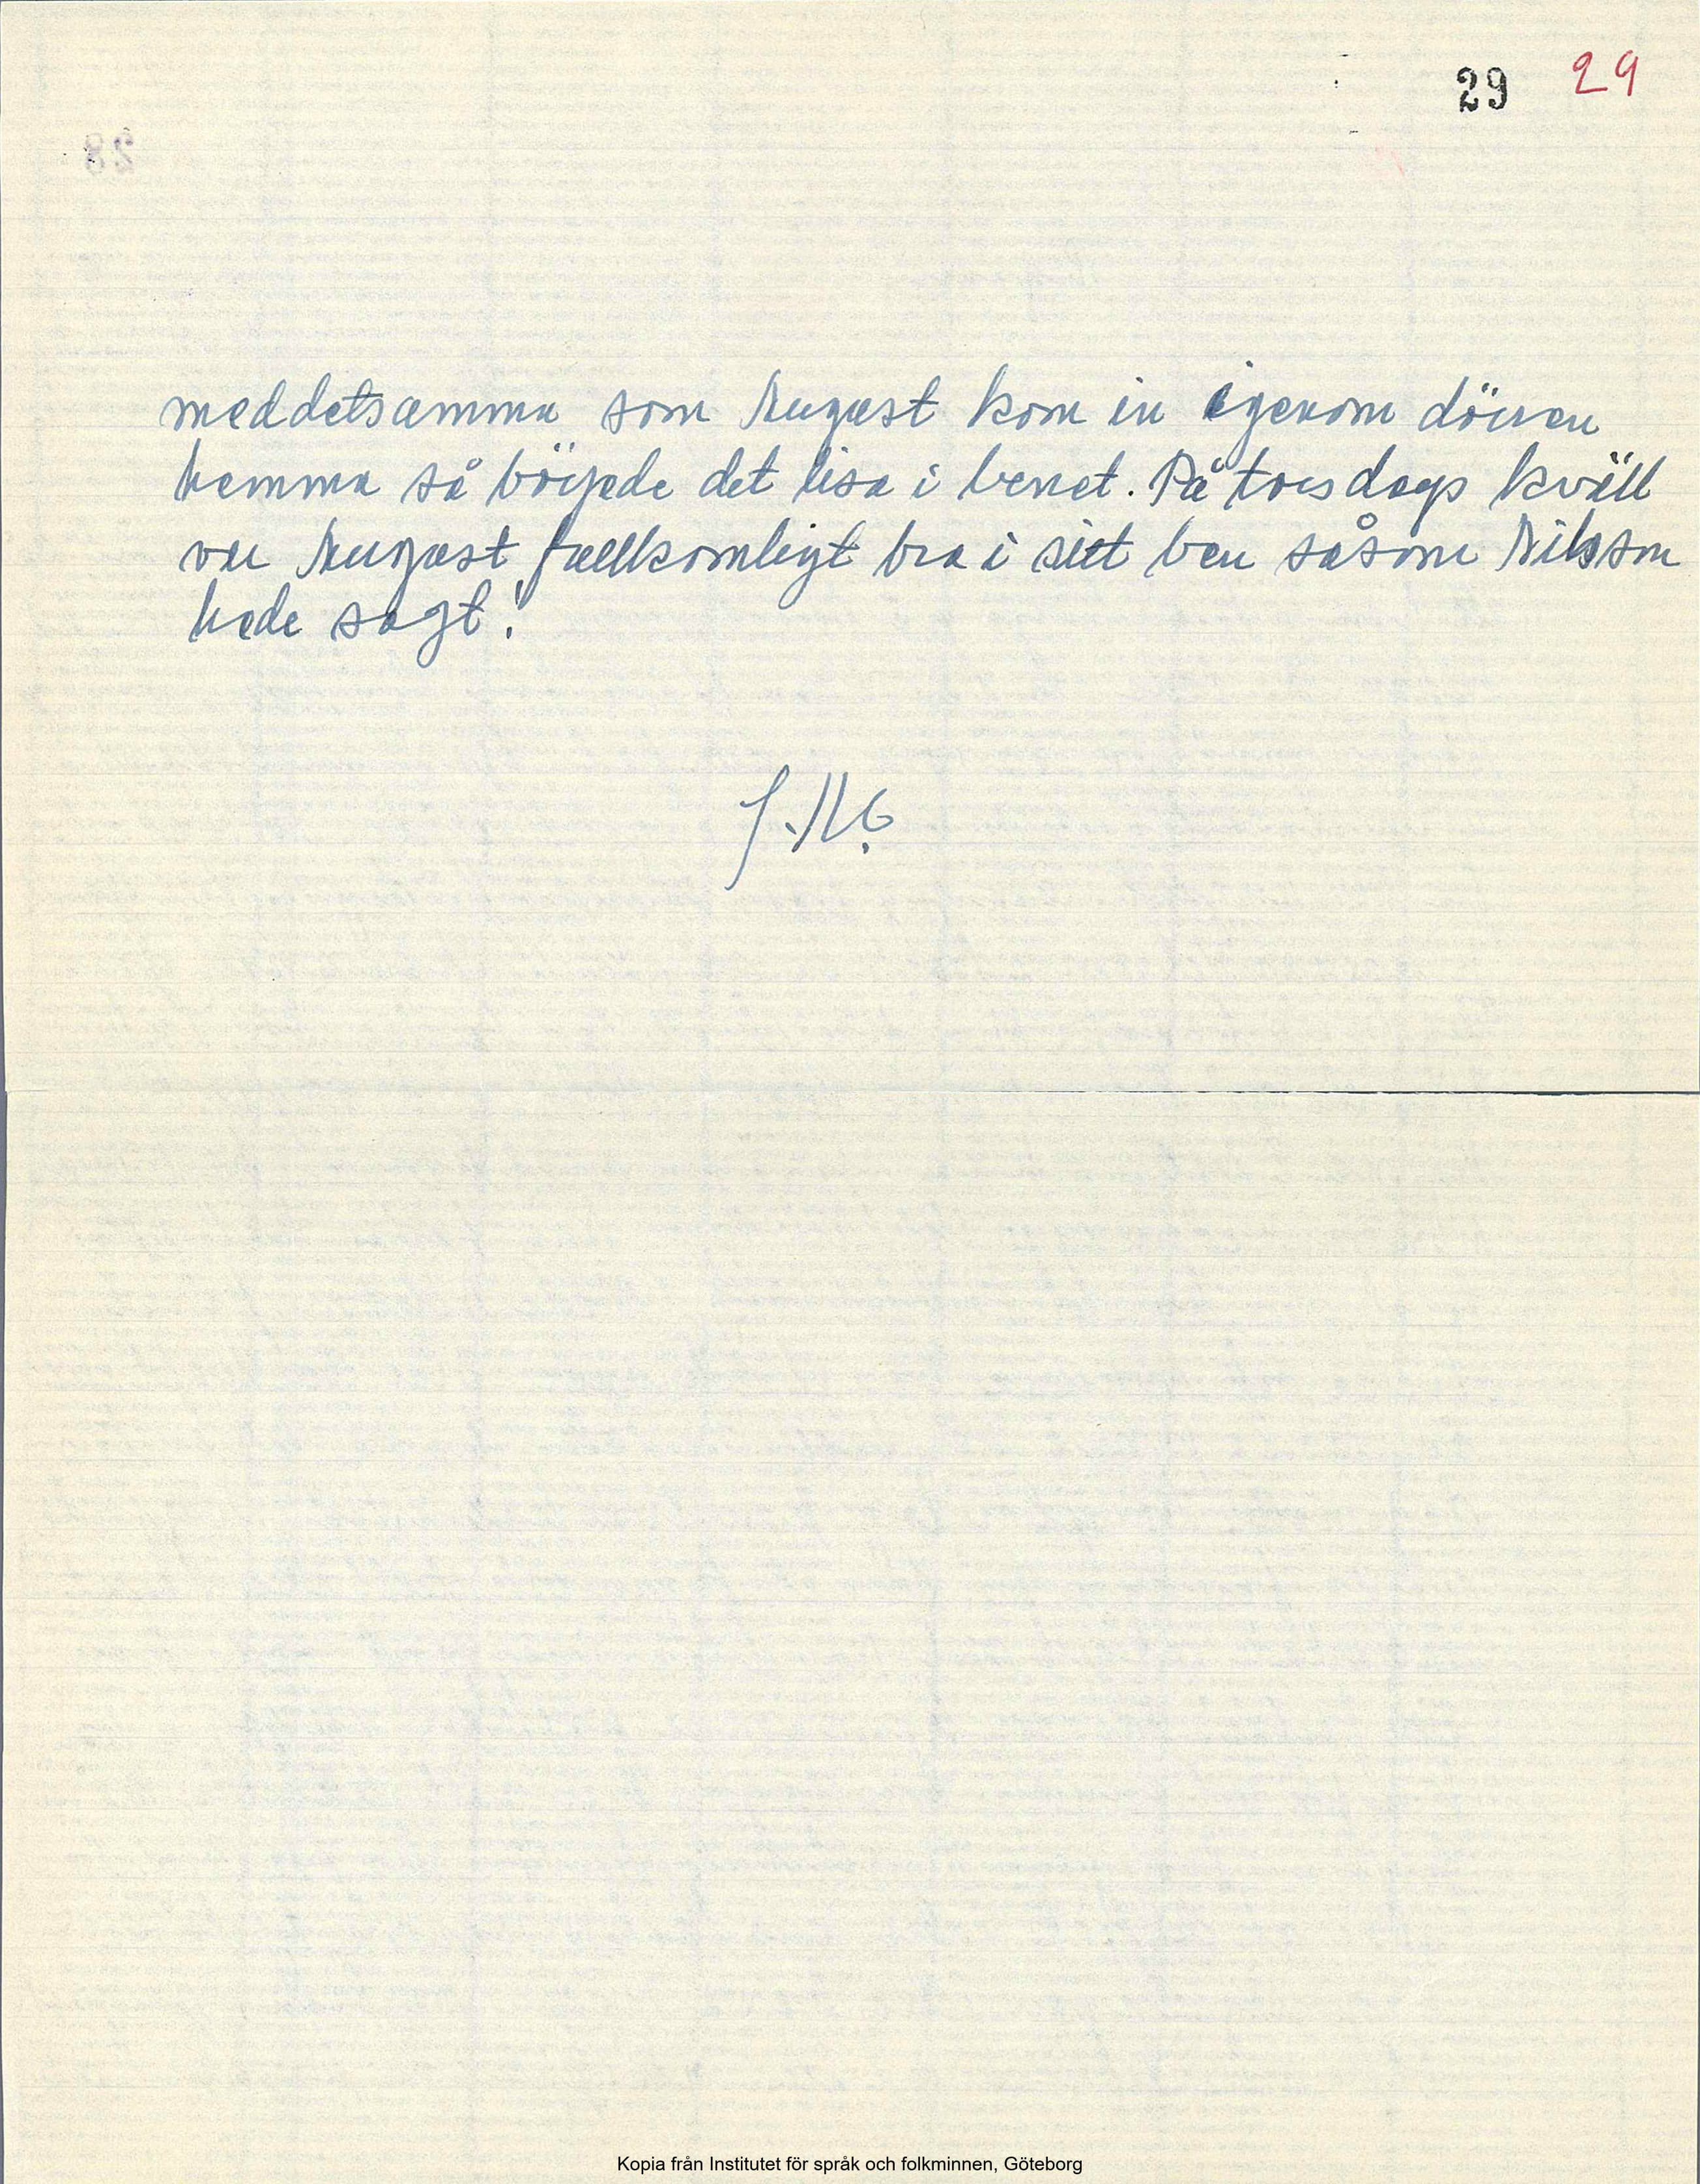 29 29
28
meddetsamma som August kom in igenom dörren
hemma så började det lisa i benet. På torsdags kväll
var August fullkomligt bra i sitt ben såsom Nilsson
hade sagt!
Kopia från Institutet för språk och folkminnen, Göteborg